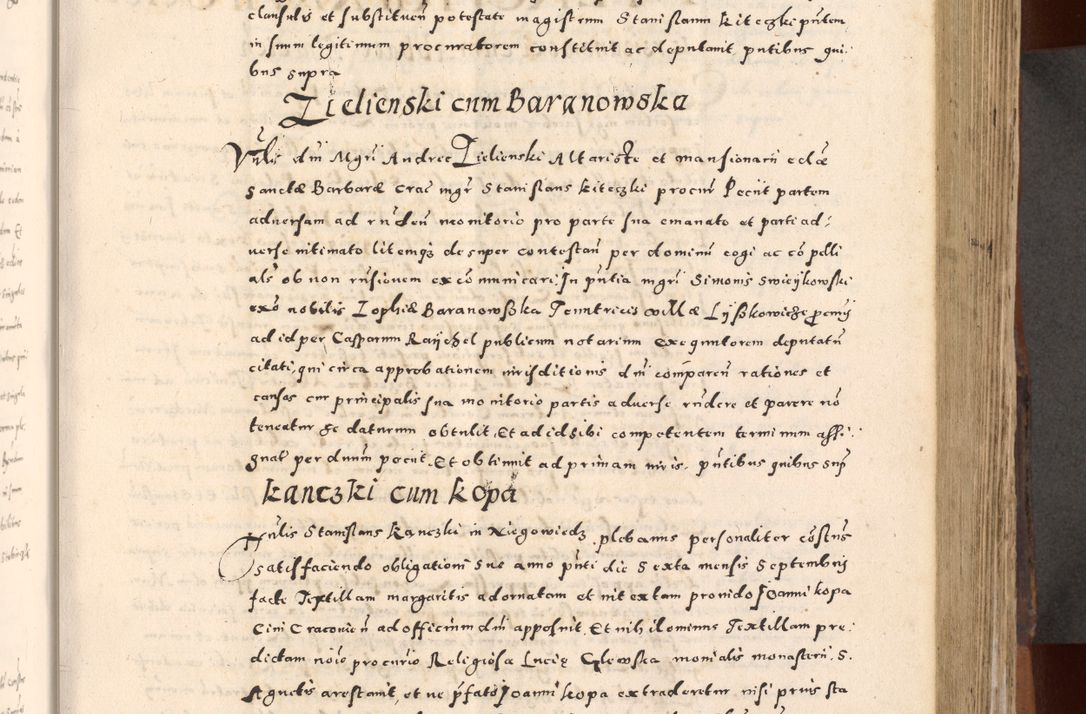 clausulis et substituen potestate magistrum Stanislaum Kiteczki pntem
in suum legitimum procuratorem constituit ac deputauit pntibus qui
bus supra
Zielienski cum Baranowska
Vnlis dni Mgri Andree Zielienski Altariste et mansionarii eclæ
sanctæ Barbaræ Crac mgr Stanislaus Kiteczki procur Peciit partem
aduersam ad rnden monitorio pro parte sua emanato et parti ad
uerse intimato litemqz desuper contestan per dominum cogi ac compelli
als ob non rnsionem excommunicari. In pntia mgri Simonis Swiciikowski
exo nobilis Zophiæ Baranowska Tenutricis villæ Lyszkowicze procuris
ad id per Casparum Raychel publicum notarium exequutorem deputatu
citati, qui circa approbationem iurisditionis dni comparen rationes et
causas cur principalis sua monitorio partis aduerse rndere et parere no
teneatur se daturum obtulit, Et ad id sibi competentem terminum assi
gnar per dnum peciit. Et obtinuit ad primam iuris. pntibus quibus sup
Kanczki cum Kopa
Hnlis Stanislaus Kanczki in Niegowiedz plebanus personaliter costens
satisfaciendo obligationi sue anno pnti die Sexta mensis Septembris
facte Textillam margaritis adornatam et nitextam prouido Joanni Kopa
Ciui Cracouien ad officium dni apposuit, Et nihilominus Textillam pre
dictam noio procurio Religiosa Lucię Glewska monialis monasterii. S.
Agnetis arestauit, et ne pfato Joanni Kopa extraderetur nisi prius sta